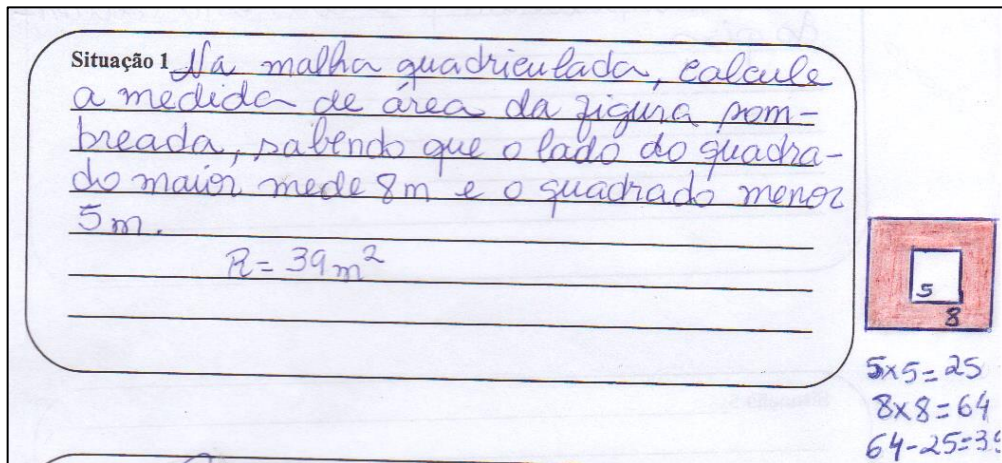 Situação 1 Na malha quadriculada, calcule
a medida de área da figura som-
breada, sabendo que o lado do quadra-
do maior mede 8m e o quadrado menor
5m.
R= 39m²
5
8
5x5=25
8x8=64
64-25=39